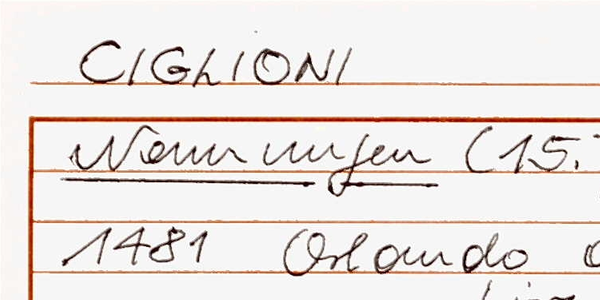 CIGLIONI
Nennungen (15.
1481 Orlando